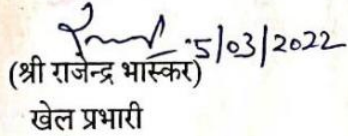 5/03/2022
(श्री राजेन्द्र भास्कर)
खेल प्रभारी